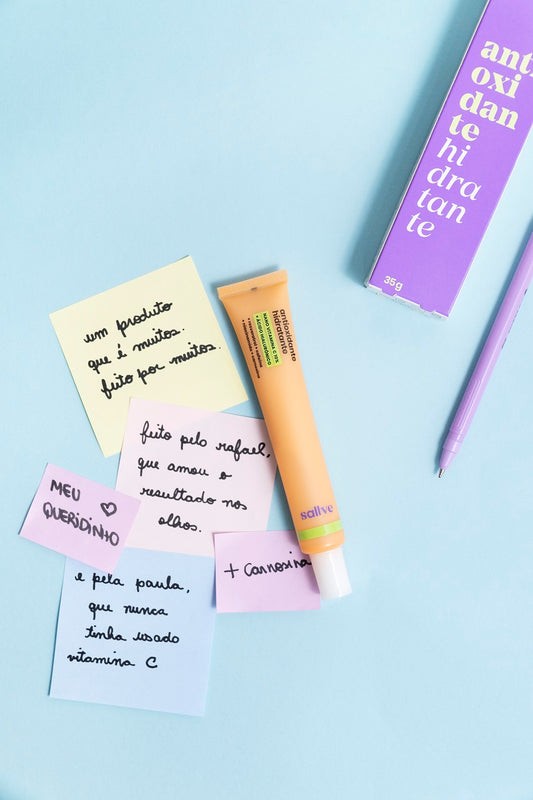 anti
oxi
dan
te
hi
dra
tan
te
35g
um produto
que é muitos.
feito por muitos.
antioxidante
hidratante
NANO VITAMINA C 10%
+ ÁCIDO HIALURÔNICO
sallve
feito pelo rafael,
que amou o
resultado nos
olhos.
MEU
QUERiDiNHO
+ carnosina
e pela paula,
que nunca
tinha usado
vitamina C